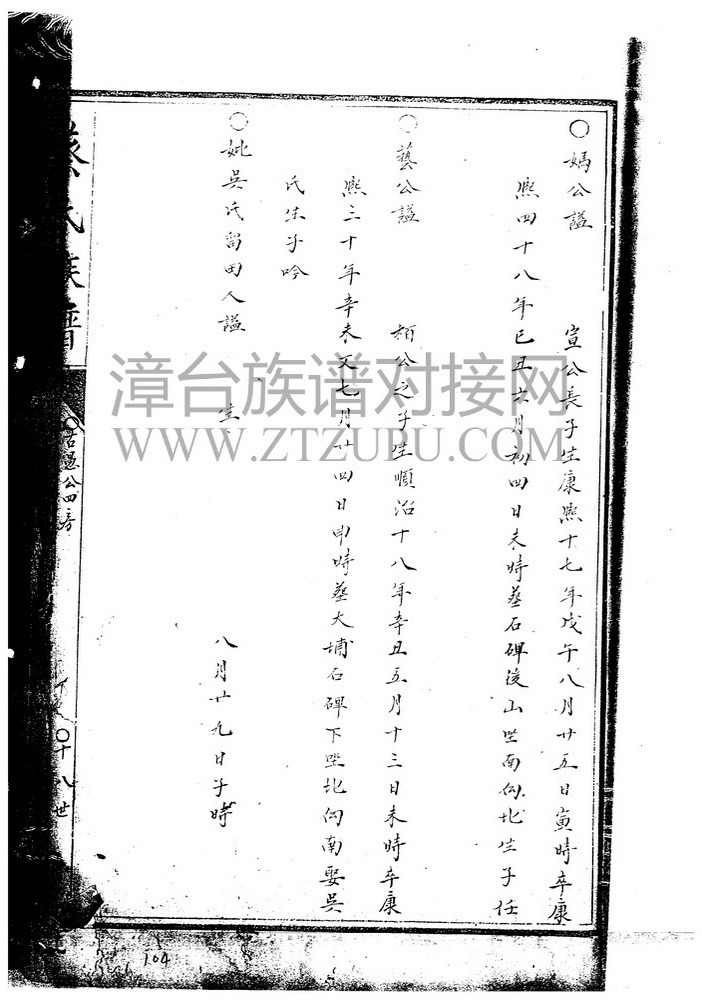 ○媽公謚　宣公長子生康熙十七年戊午八月廿五日寅時卒康
熙四十八年己丑六月初四日未時葬石碑後山坐南向北生子任
○藝公謚　栢公之子生順治十八年辛丑五月十三日未時卒康
熙三十年辛未又七月廿四日申時葬大埔石碑下坐北向南娶吳
氏生子吟
○妣吳氏留田人謚　生　八月廿九日子時
氏族譜
公四房
十八世
104
漳台族谱对接网
WWW.ZTZUPU.COM